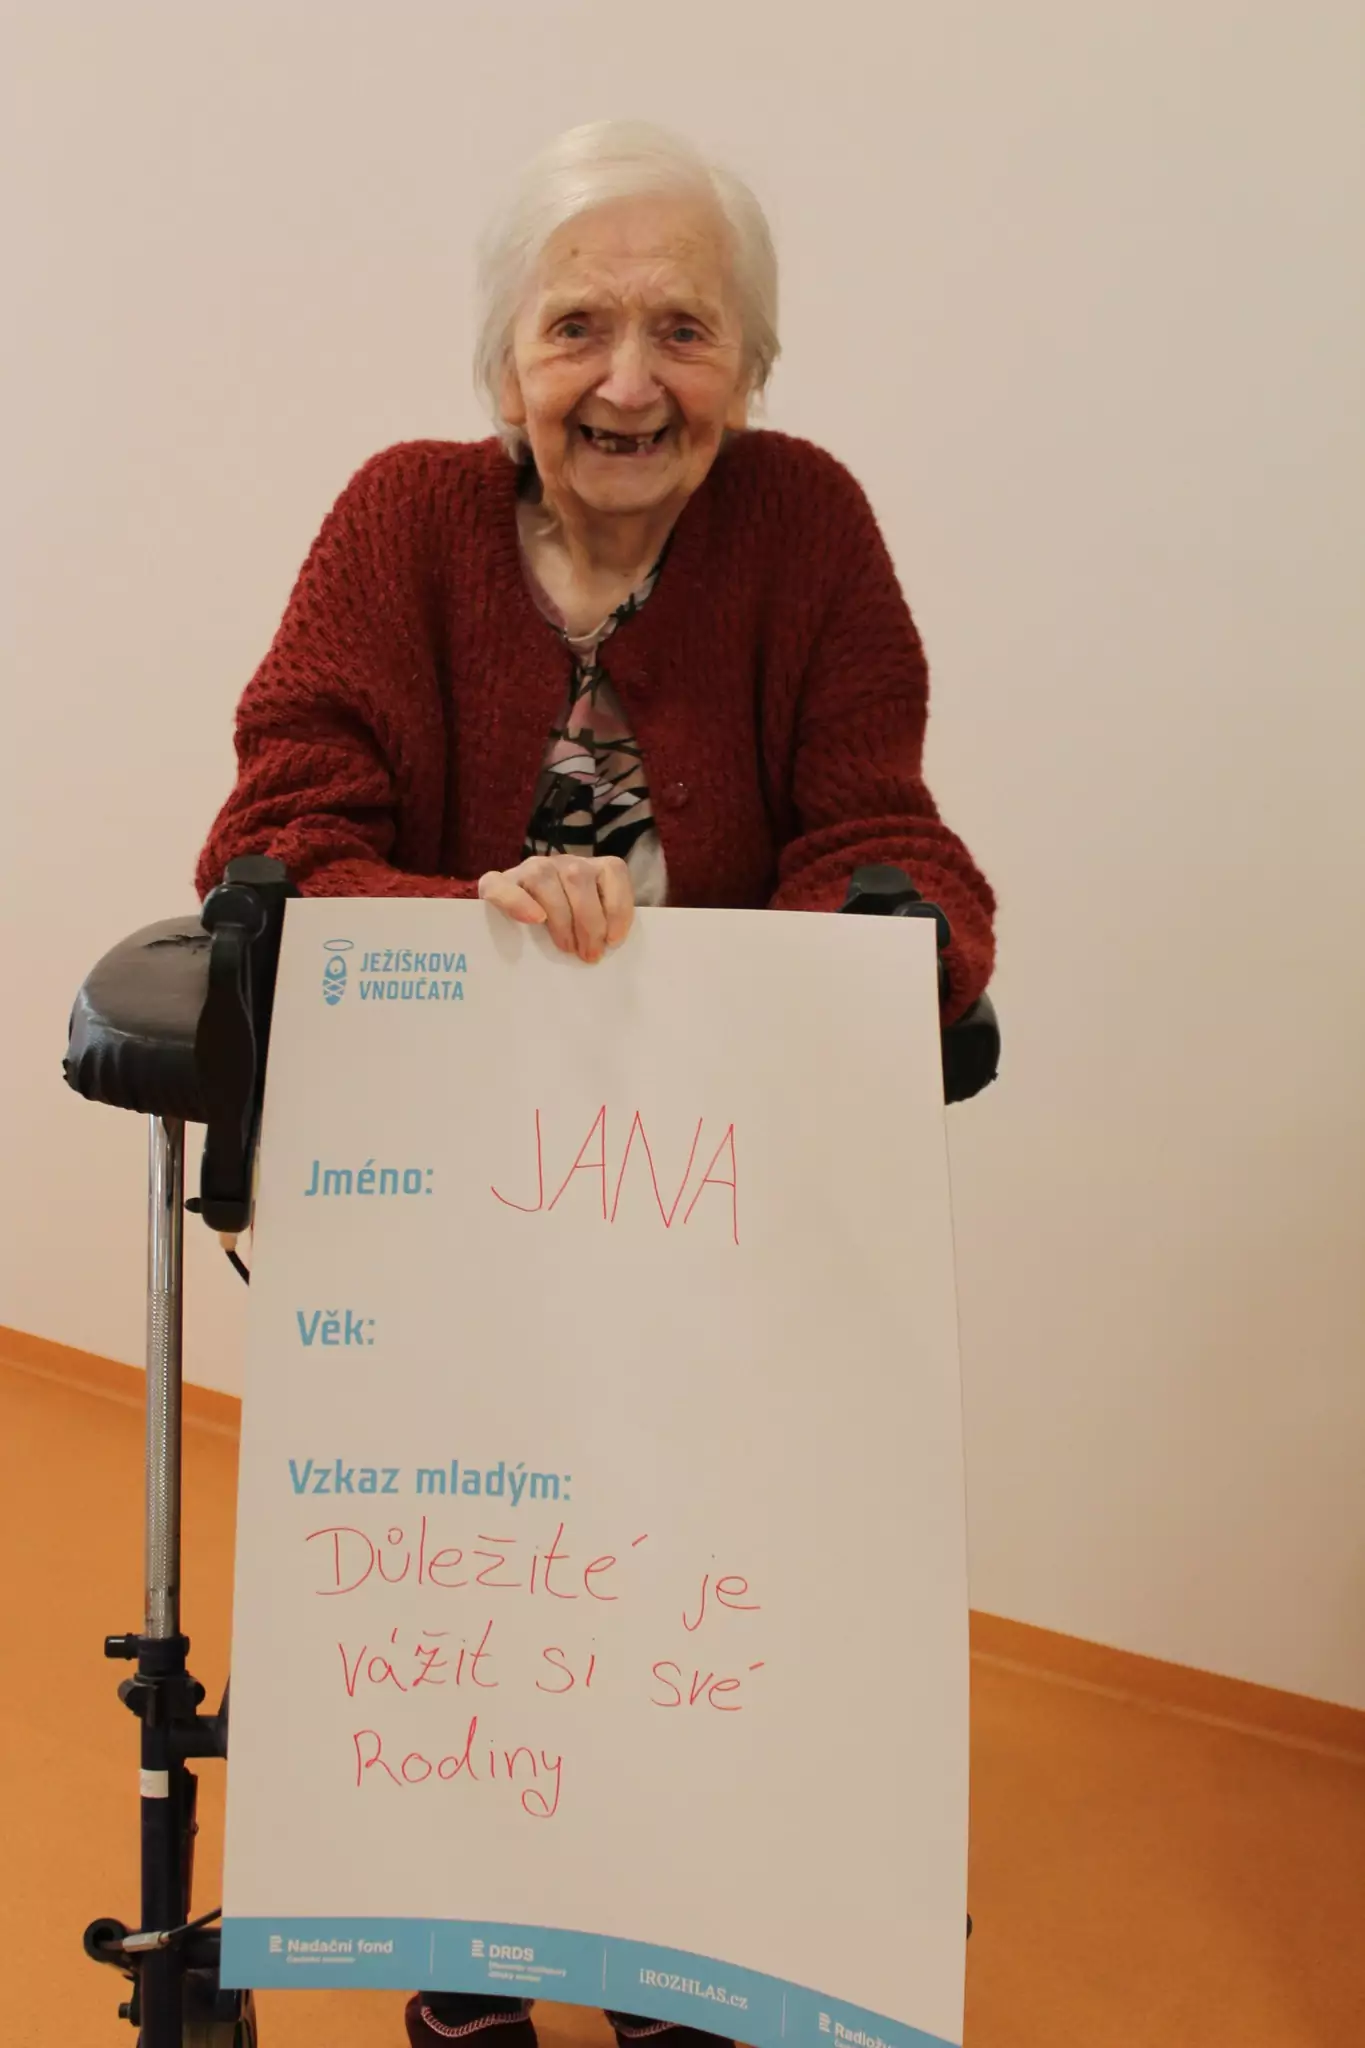 JEŽÍŠKOVA
VNOUČATA
Jméno: JANA
Věk:
Vzkaz mladým:
Důležité je
vážit si své
Rodiny
Nadační fond
DRDS
iROZHLAS.cz